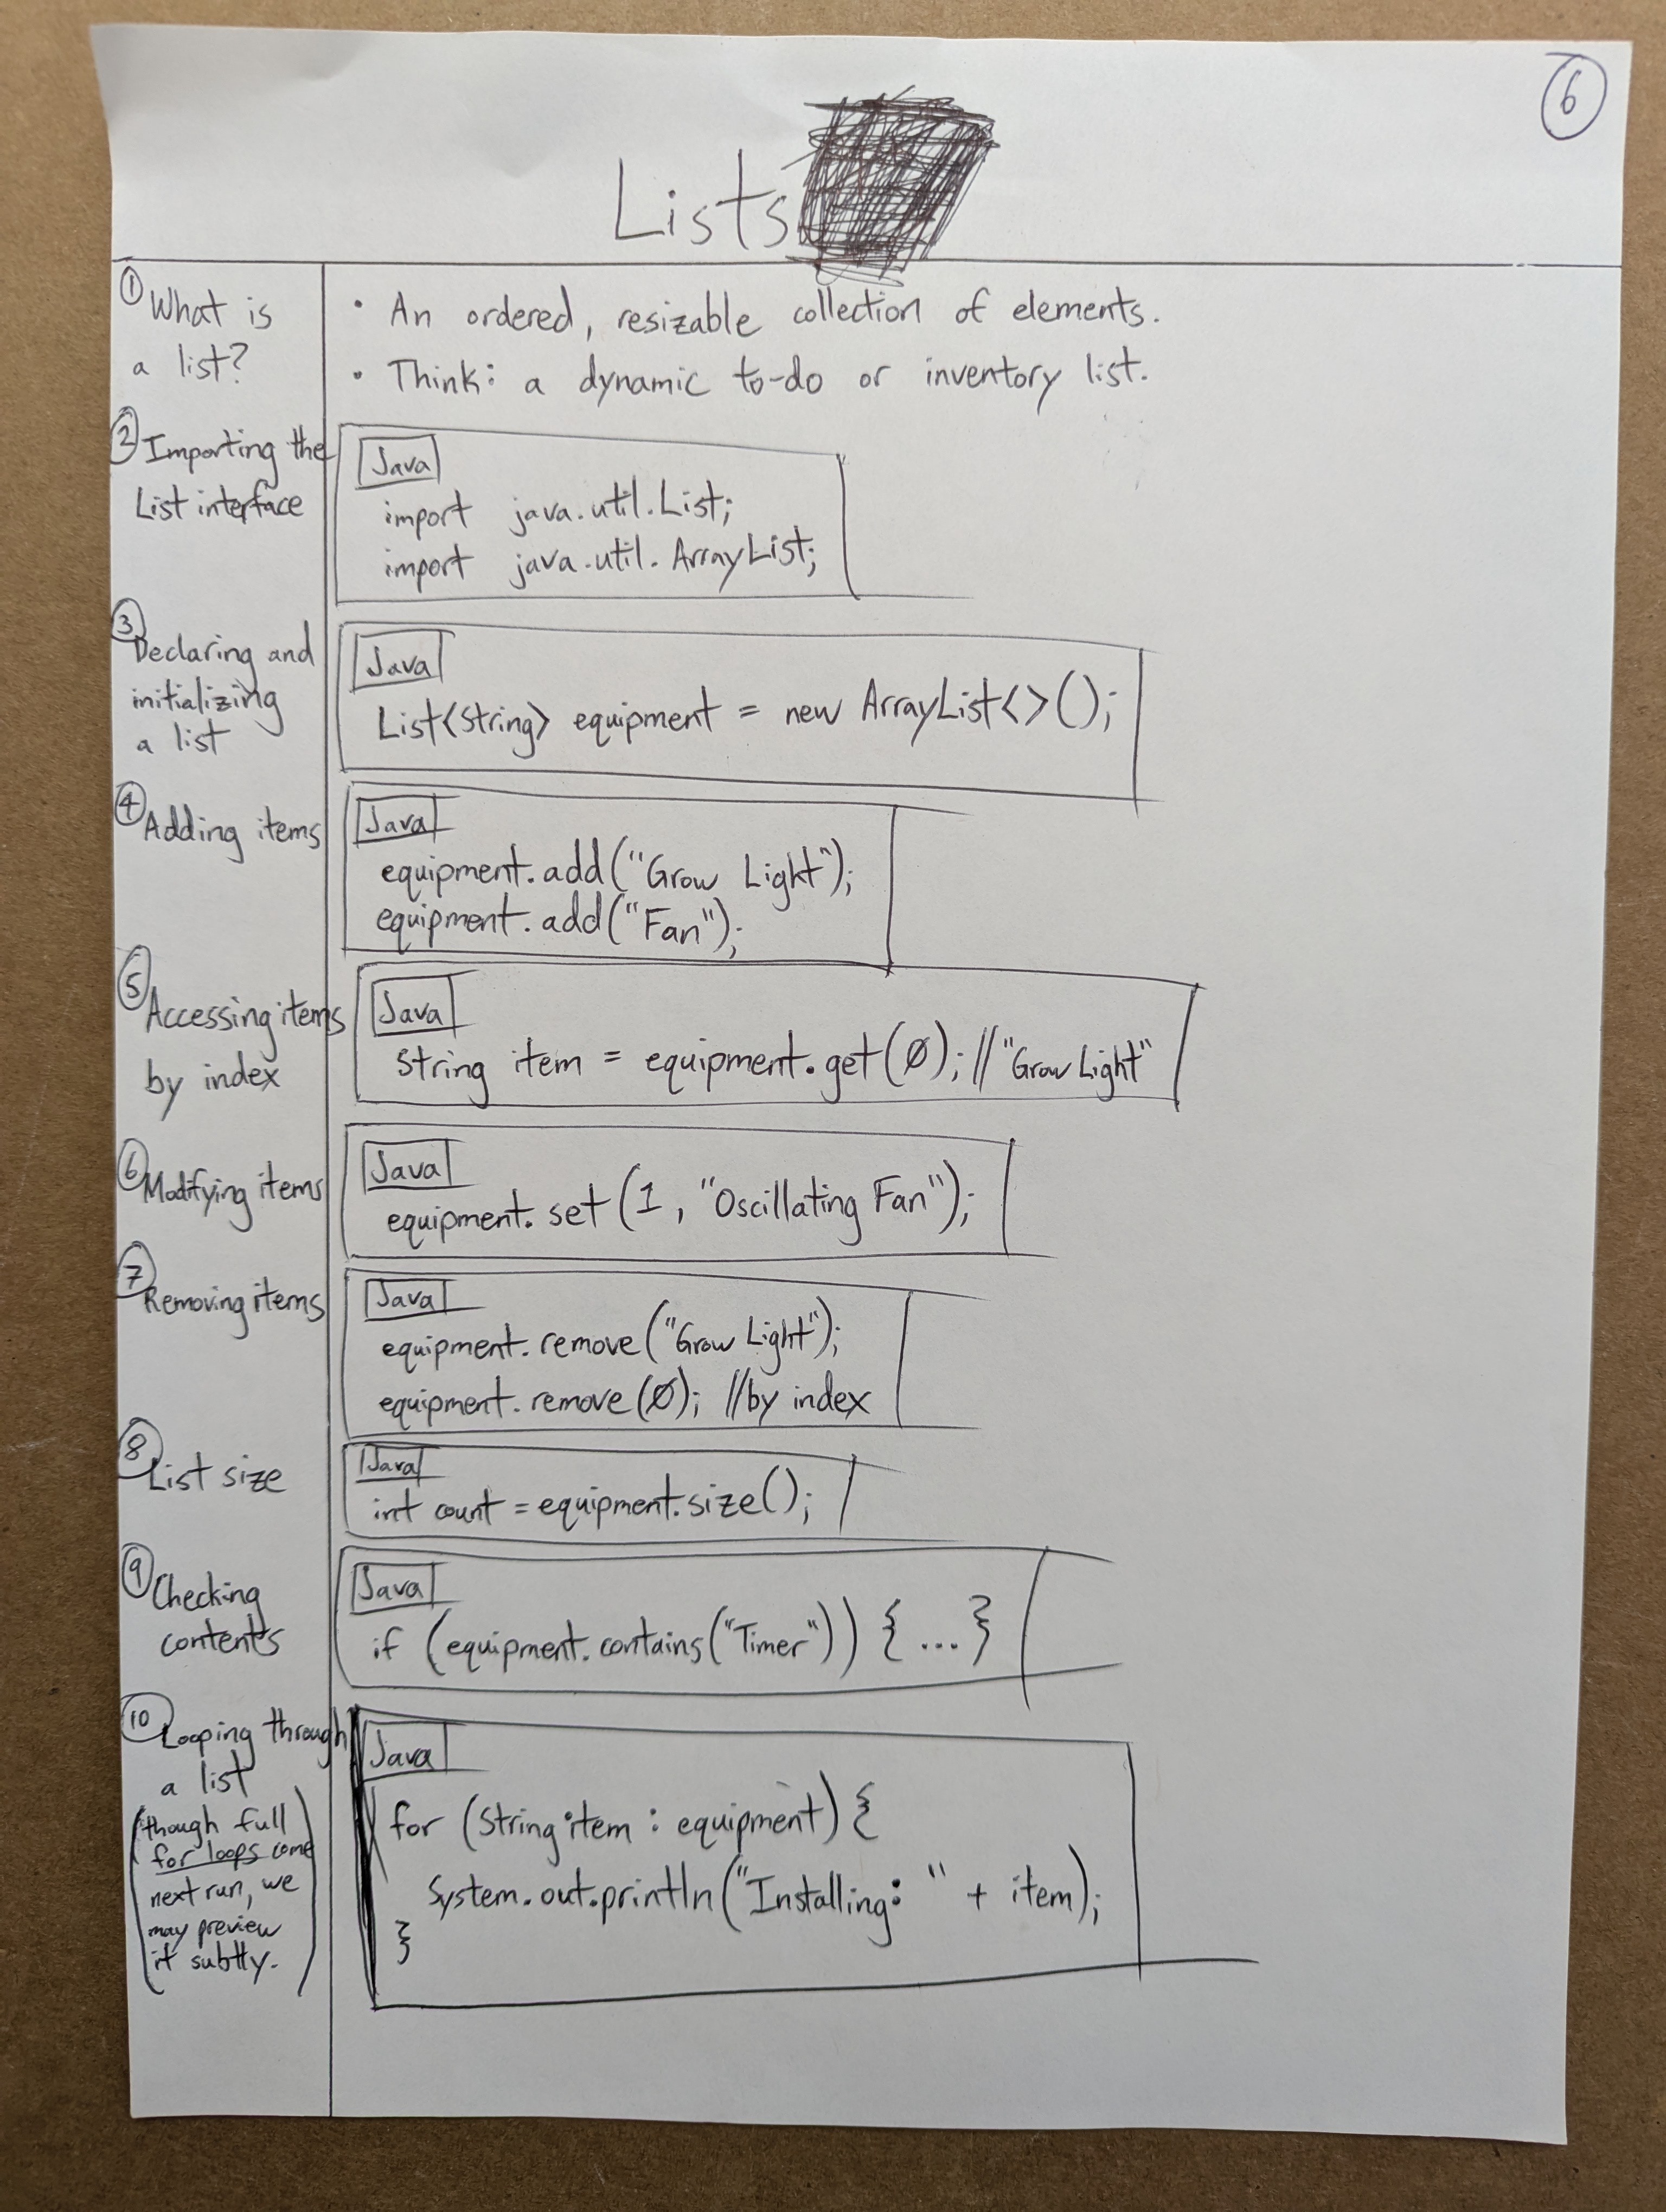 6
Lists
① What is
a list?
• An ordered, resizable collection of elements.
• Think: a dynamic to-do or inventory list.
② Importing the
List interface
Java
import java.util.List;
import java.util.ArrayList;
③ Declaring and
initializing
a list
Java
List<String> equipment = new ArrayList<>();
④ Adding items
Java
equipment.add("Grow Light");
equipment.add("Fan");
⑤ Accessing items
by index
Java
String item = equipment.get(0); //"Grow Light"
⑥ Modifying items
Java
equipment.set(1, "Oscillating Fan");
⑦ Removing items
Java
equipment.remove("Grow Light");
equipment.remove(0); //by index
⑧ List size
Java
int count = equipment.size();
⑨ Checking
contents
Java
if (equipment.contains("Timer")) { ... }
⑩ Looping through
a list
(though full
for loops come
next run, we
may preview
it subtly.)
Java
for (String item : equipment) {
System.out.println("Installing: " + item);
}